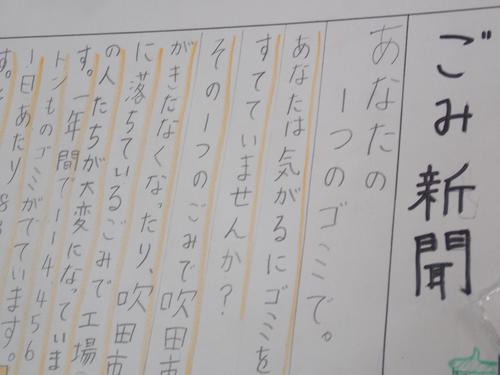 ごみ新聞
あなたの
1つのゴミで。
あなたは気がるにゴミを
すてていませんか?
その1つのごみで吹田市
がきたなくなったり、吹田市
に落ちているごみで工場
の人たちが大変になっていま
す。一年間で114,456
トンものゴミがでています。
1日あたり
す。